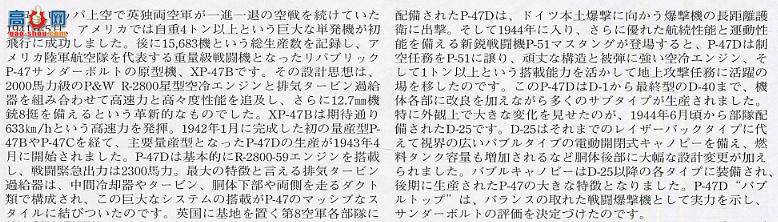 パ上空で英独両空軍が一進一退の空戦を続けていた
アメリカでは自重4トン以上という巨大な単発機が初
飛行に成功しました。後に15,683機という総生産数を記録し、ア
メリカ陸軍航空隊を代表する重量級戦闘機となったリパブリック
P-47サンダーボルトの原型機、XP-47Bです。その設計思想は、
2000馬力級のP&W R-2800星型空冷エンジンと排気タービン過給
器を組み合わせて高速力と高々度性能を追及し、さらに12.7㎜機
銃8挺を備えるという革新的なものでした。XP-47Bは期待通り
633㎞/hという高速力を発揮。1942年1月に完成した初の量産型P-
47BやP-47Cを経て、主要量産型となったP-47Dの生産が1943年4
月に開始されました。P-47Dは基本的にR-2800-59エンジンを搭載
し、戦闘緊急出力は2300馬力。最大の特徴と言える排気タービン
過給器は、中間冷却器やタービン、胴体下部や両側を走るダクト
類で構成され、この巨大なシステムの搭載がP-47のマッシブなス
タイルに結びついたのです。英国に基地を置く第8空軍各部隊に
配備されたP-47Dは、ドイツ本土爆撃に向かう爆撃機の長距離護
衛に出撃。そして1944年に入り、さらに優れた航続性能と運動性
能を備える新鋭戦闘機P-51マスタングが登場すると、P-47Dは制
空任務をP-51に譲り、頑丈な構造と被弾に強い空冷エンジン、そ
して1トン以上という搭載能力を活かして地上攻撃任務に活躍の
場を移したのです。このP-47DはD-1から最終型のD-40まで、機
体各部に改良を加えながら多くのサブタイプが生産されました。
特に外観上で大きな変化を見せたのが、1944年6月頃から部隊配
備されたD-25です。D-25はそれまでのレイザーバックタイプに代
えて視界の広いバブルタイプの電動開閉式キャノピーを備え、燃
料タンク容量も増加されるなど胴体後部に大幅な設計変更が加え
られました。バブルキャノピーはD-25以降の各タイプに装備され、
後期に生産されたP-47の大きな特徴となりました。P-47D“バブ
ルトップ”は、バランスの取れた戦闘爆撃機として実力を示し、
サンダーボルトの評価を決定づけたのです。